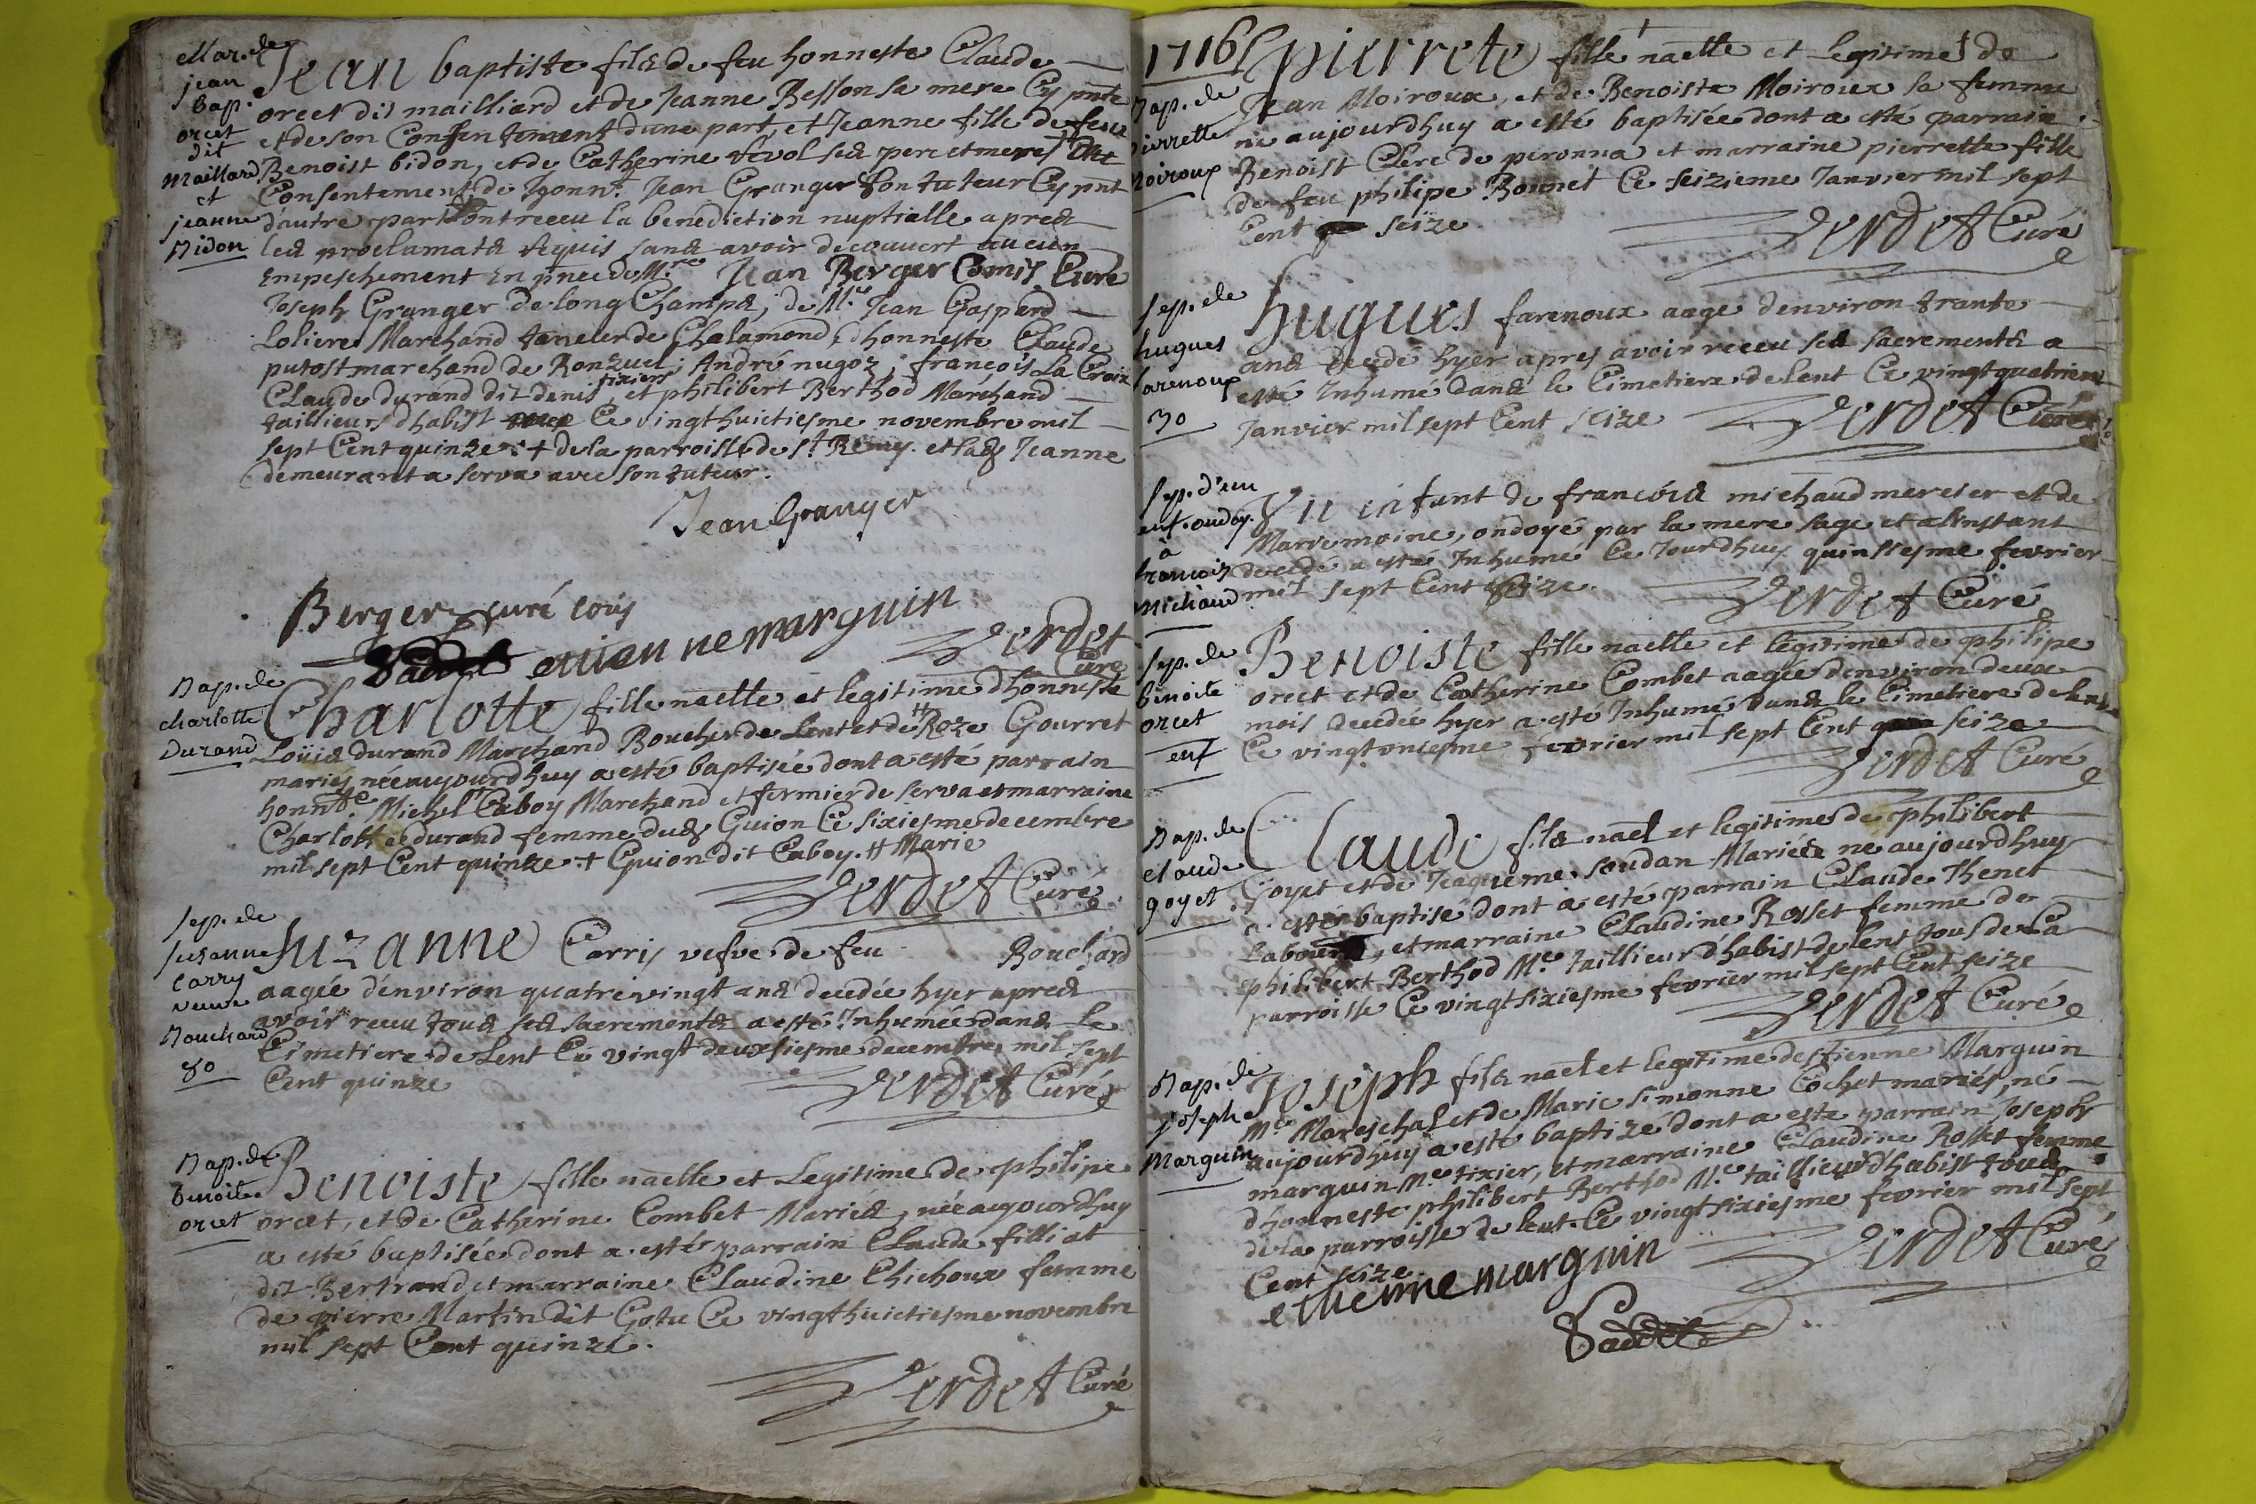 Mar. de
jean
bap.
orcet
dit
maillard
et
jeanne
Bidon
Jean baptiste fils de feu honneste Claude
orcet dit mailliard et de Jeanne Besson sa mere Cy pnte
et de son Consentement dune part, et Jeanne fille de feu
Benoist bidon, et de Catherine fevol ses pere et mere
Consentement de Jean Granger son tuteur Cy pnt
dautre part ont receu la benediction nuptialle apres
les proclamats requis sans avoir decouvert aucun
Empeschement En pnce de Mre Jean Berger Comis Curé
Joseph Granger de long Champs, de Mre Jean Gaspard
Loliere Marchand taneler de Chalamond, dhonneste Claude
putost marchand de Ronzuel, André nugoz, françois La Croix
Claude durand dit denis tixiers, et philibert Berthod Marchand
taillieurs dhabist Ce vingthuictiesme novembre mil
sept Cent quinze. + de la parroisse de st Remy. et lad Jeanne
demeurant a serva avec son tuteur.
Jean Granger
Berger curé comis
ettien ne marguin
Verdet
Curé
Bap. de
charlotte
Durand
Charlotte fille naelle et legitime dhonneste
Loüis durand Marchand Boucher de Lent et de # Roze Gourret
maries née aujourdhuy a esté baptisée dont a esté parrain
honnte. Michel Caboy Marchand et fermier de serva et marraine
Charlotte durand femme dud Guion Ce sixiesme decembre
mil sept Cent quinze. + Guion dit Caboy. # Marie
Verdet Curé
sep. de
suzanne
Carry
veuve
Bouchard
80
Suzanne Carris vefve de feu Bouchard
aagée d'environ quatrevingt ans decedée hyer apres
avoir receu tous ses sacrements a esté Inhumée dans Le
Cimetiere de Lent Ce vingt deuxsiesme decembre mil sept
Cent quinze
Verdet Curé
Bap. de
benoite
orcet
Benoiste fille naelle et Legitime de philipe
orcet, et de Catherine Combet Mariés, née aujourdhuy
a esté baptisée dont a esté parrain Claude filliat
dit Bertrand et marraine Claudine Chichoux femme
de pierre Martin dit Gotu Ce vingthuictiesme novembre
mil sept Cent quinze.
Verdet Curé
1716
Bap. de
pierrette
Moiroux
pierrete fille naelle et Legitime de
Jean Moiroux, et de Benoista Moiroux sa femme
ne aujourdhuy a esté baptisée dont a esté parrain
Benoist Clerc de peronna et marraine pierrette fille
de feu philipe Bonnet Ce seizieme Janvier mil sept
Cent seize.
Verdet Curé
sep. de
hugues
farenoux
30
hugues farenoux aagé denviron trante
ans decedé hyer apres avoir receu ses sacrements a
esté Inhumé dans le Cimetiere de Lent Ce vingtquatrieme
Janvier mil sept Cent seize
Verdet Curé
sep. d'un
enf. ondoy.
à
francois
Michaud
Un enfant de francois michaud mercier et de
Marie moine, ondoyé par la mere sage et alinstant
decedé a esté Inhumé Ce Jourdhuy quinssiesme fevrier
mil sept Cent seize.
Verdet Curé
sep. de
benoite
orcet
enf
Benoiste fille naelle et legitime de philipe
orcet et de Catherine Combet aagée denviron deux
mois decedée hyer a esté Inhumé dans le Cimetiere de Lent
Ce vingtoniesme fevrier mil sept Cent seize
Verdet Curé
Bap. de
claude
goyet
Claude fils nael et legitime de philibert
Goyet et de Jaqueme soudan Mariés ne aujourdhuy
a esté baptisé dont a esté parrain Claude Thenet
Laboureur, et marraine Claudine Rosset femme de
philibert Berthod Me. taillieur dhabist de lent tous de La
parroisse Ce vingtsixiesme fevrier mil sept Cent seize
Verdet Curé
Bap. de
joseph
Marguin
Joseph fils nael et legitime destienne Marguin
Me Mareschal et de Marie simonne Cochet mariés, né
aujourdhuy a esté baptize dont a esté parrain Joseph
marguin Me tixier, et marraine Claudine Rosset femme
dhonneste philibert Berthod Me. taillieur dhabist tous
de la parroisse de lent. Ce vingtsixiesme fevrier mil sept
Cent seize.
Verdet Curé
etthienne marguin